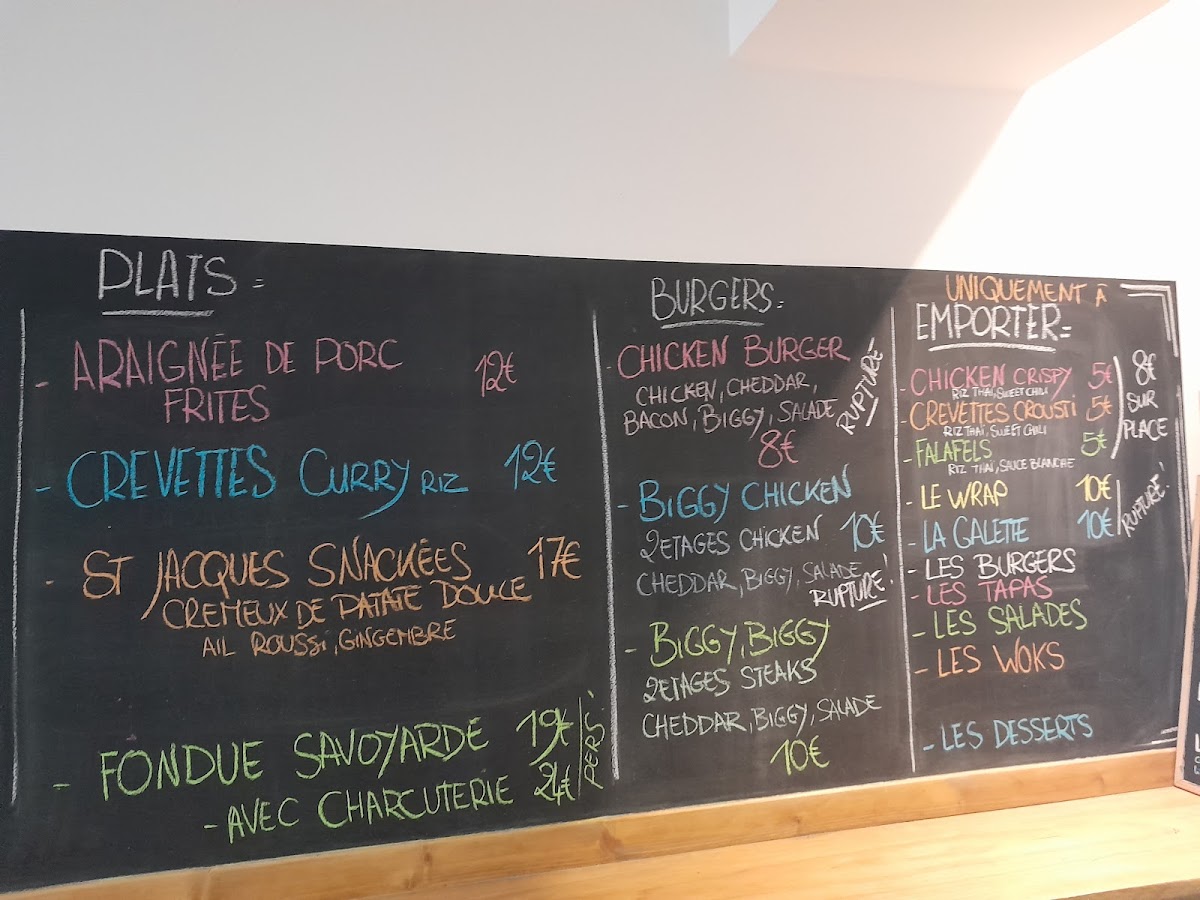 PLATS =
- ARAIGNÉE DE PORC 12€
FRITES
- CREVETTES CURRY RIZ 12€
- ST JACQUES SNACKÉES 17€
CREMEUX DE PATATE DOUCE
AIL ROUSSI, GINGEMBRE
- FONDUE SAVOYARDE 19€
- AVEC CHARCUTERIE 24€
/PERS
BURGERS =
- CHICKEN BURGER
CHICKEN, CHEDDAR,
BACON, BIGGY, SALADE
8€
RUPTURE
- BIGGY CHICKEN
2 ETAGES CHICKEN 10€
CHEDDAR, BIGGY, SALADE
RUPTURE!
- BIGGY, BIGGY
2 ETAGES STEAKS
CHEDDAR, BIGGY, SALADE
10€
UNIQUEMENT À
EMPORTER =
- CHICKEN CRISPY 5€
RIZ THAI, SWEET CHILI
- CREVETTES CROUSTI 5€
RIZ THAÏ, SWEET CHILI
- FALAFELS 5€
RIZ THAI, SAUCE BLANCHE
8€
SUR
PLACE
- LE WRAP 10€
- LA GALETTE 10€
RUPTURE!
- LES BURGERS
- LES TAPAS
- LES SALADES
- LES WOKS
- LES DESSERTS